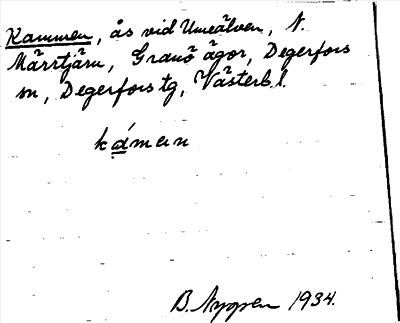 Kammen, ås vid Umeälven, N.
Märrtjärn, Granö ägor, Degerfors
sn, Degerfors tg, Västerb. l.
kámen
B. Nyggen 1934.